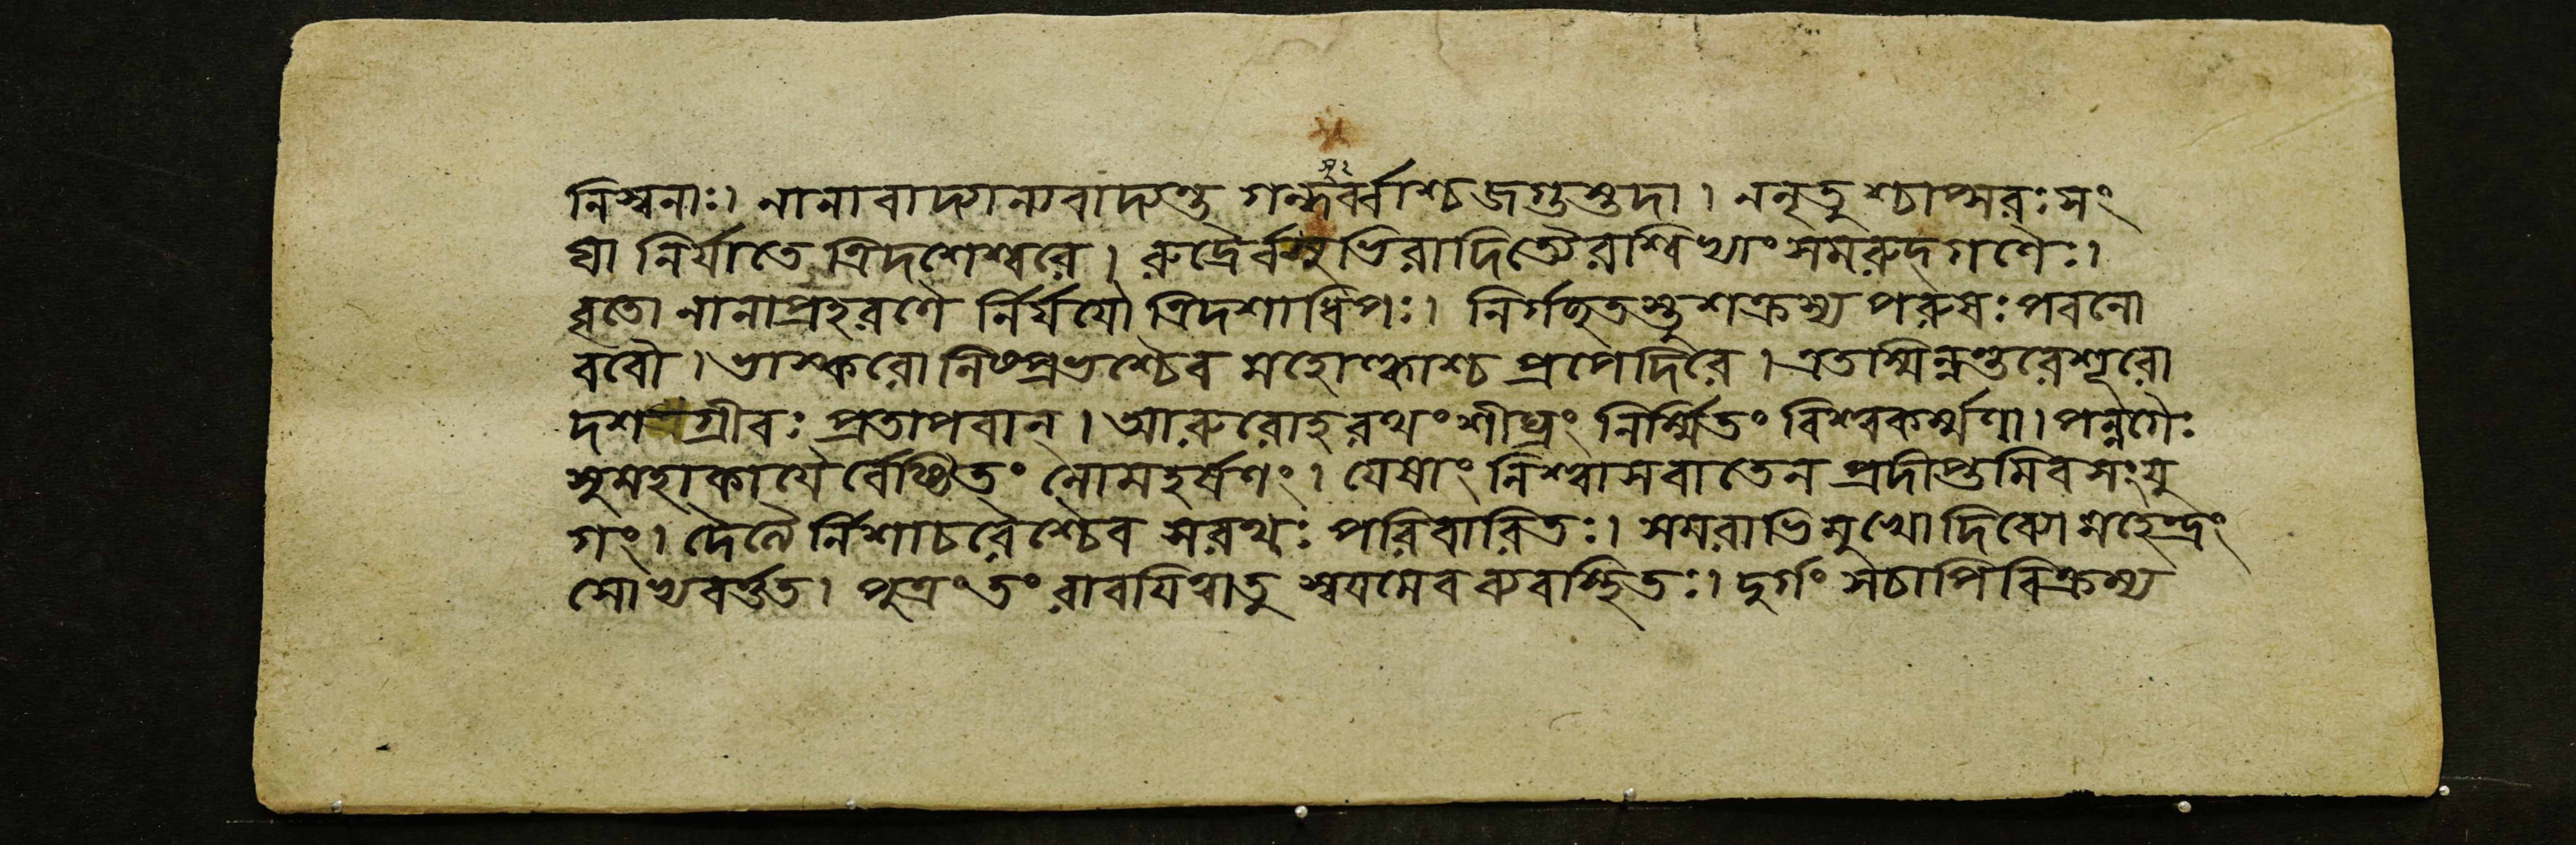 নিস্বনাঃ। নানাবাদ্যান্যবাদ্যন্ত গন্ধর্ব্বাশ্চ জগুস্তদা। ননৃতুশ্চাপ্সরঃসং
ঘা নির্যাতে ত্রিদশেশ্বরে। রুদ্রৈর্বসুভিরাদিত্যৈরাশ্বিভ্যাং সমরুদ্গণৈঃ।
বৃতো নানাপ্রহরণৈ র্নির্যযৌ ত্রিদশাধিপঃ। নির্গচ্ছতস্তু শক্রস্য পরুষঃ পবনো
ববৌ। ভাস্করো নিষ্প্রভশ্চৈব মহোল্কাশ্চ প্রপেদিরে। এতস্মিন্নন্তরে শূরো
দশগ্রীবঃ প্রতাপবান্। আরুরোহ রথং শীঘ্রং নির্ম্মিতং বিশ্বকর্ম্মণা। পন্নগৈঃ
সুমহাকায়ৈ র্বেষ্টিতং লোমহর্ষণং। যেষাং নিশ্বাসবাতেন প্রদীপ্তমিব সংযু
গং। দৈত্যৈ র্নিশাচরৈশ্চৈব স রথঃ পরিবারিতঃ। সমরাভিমুখো দিব্যো মহেন্দ্রং
সোভ্যবর্ত্তত। পুত্রং তং বারয়িত্বাতু স্বয়মেব ব্যবস্থিতঃ।